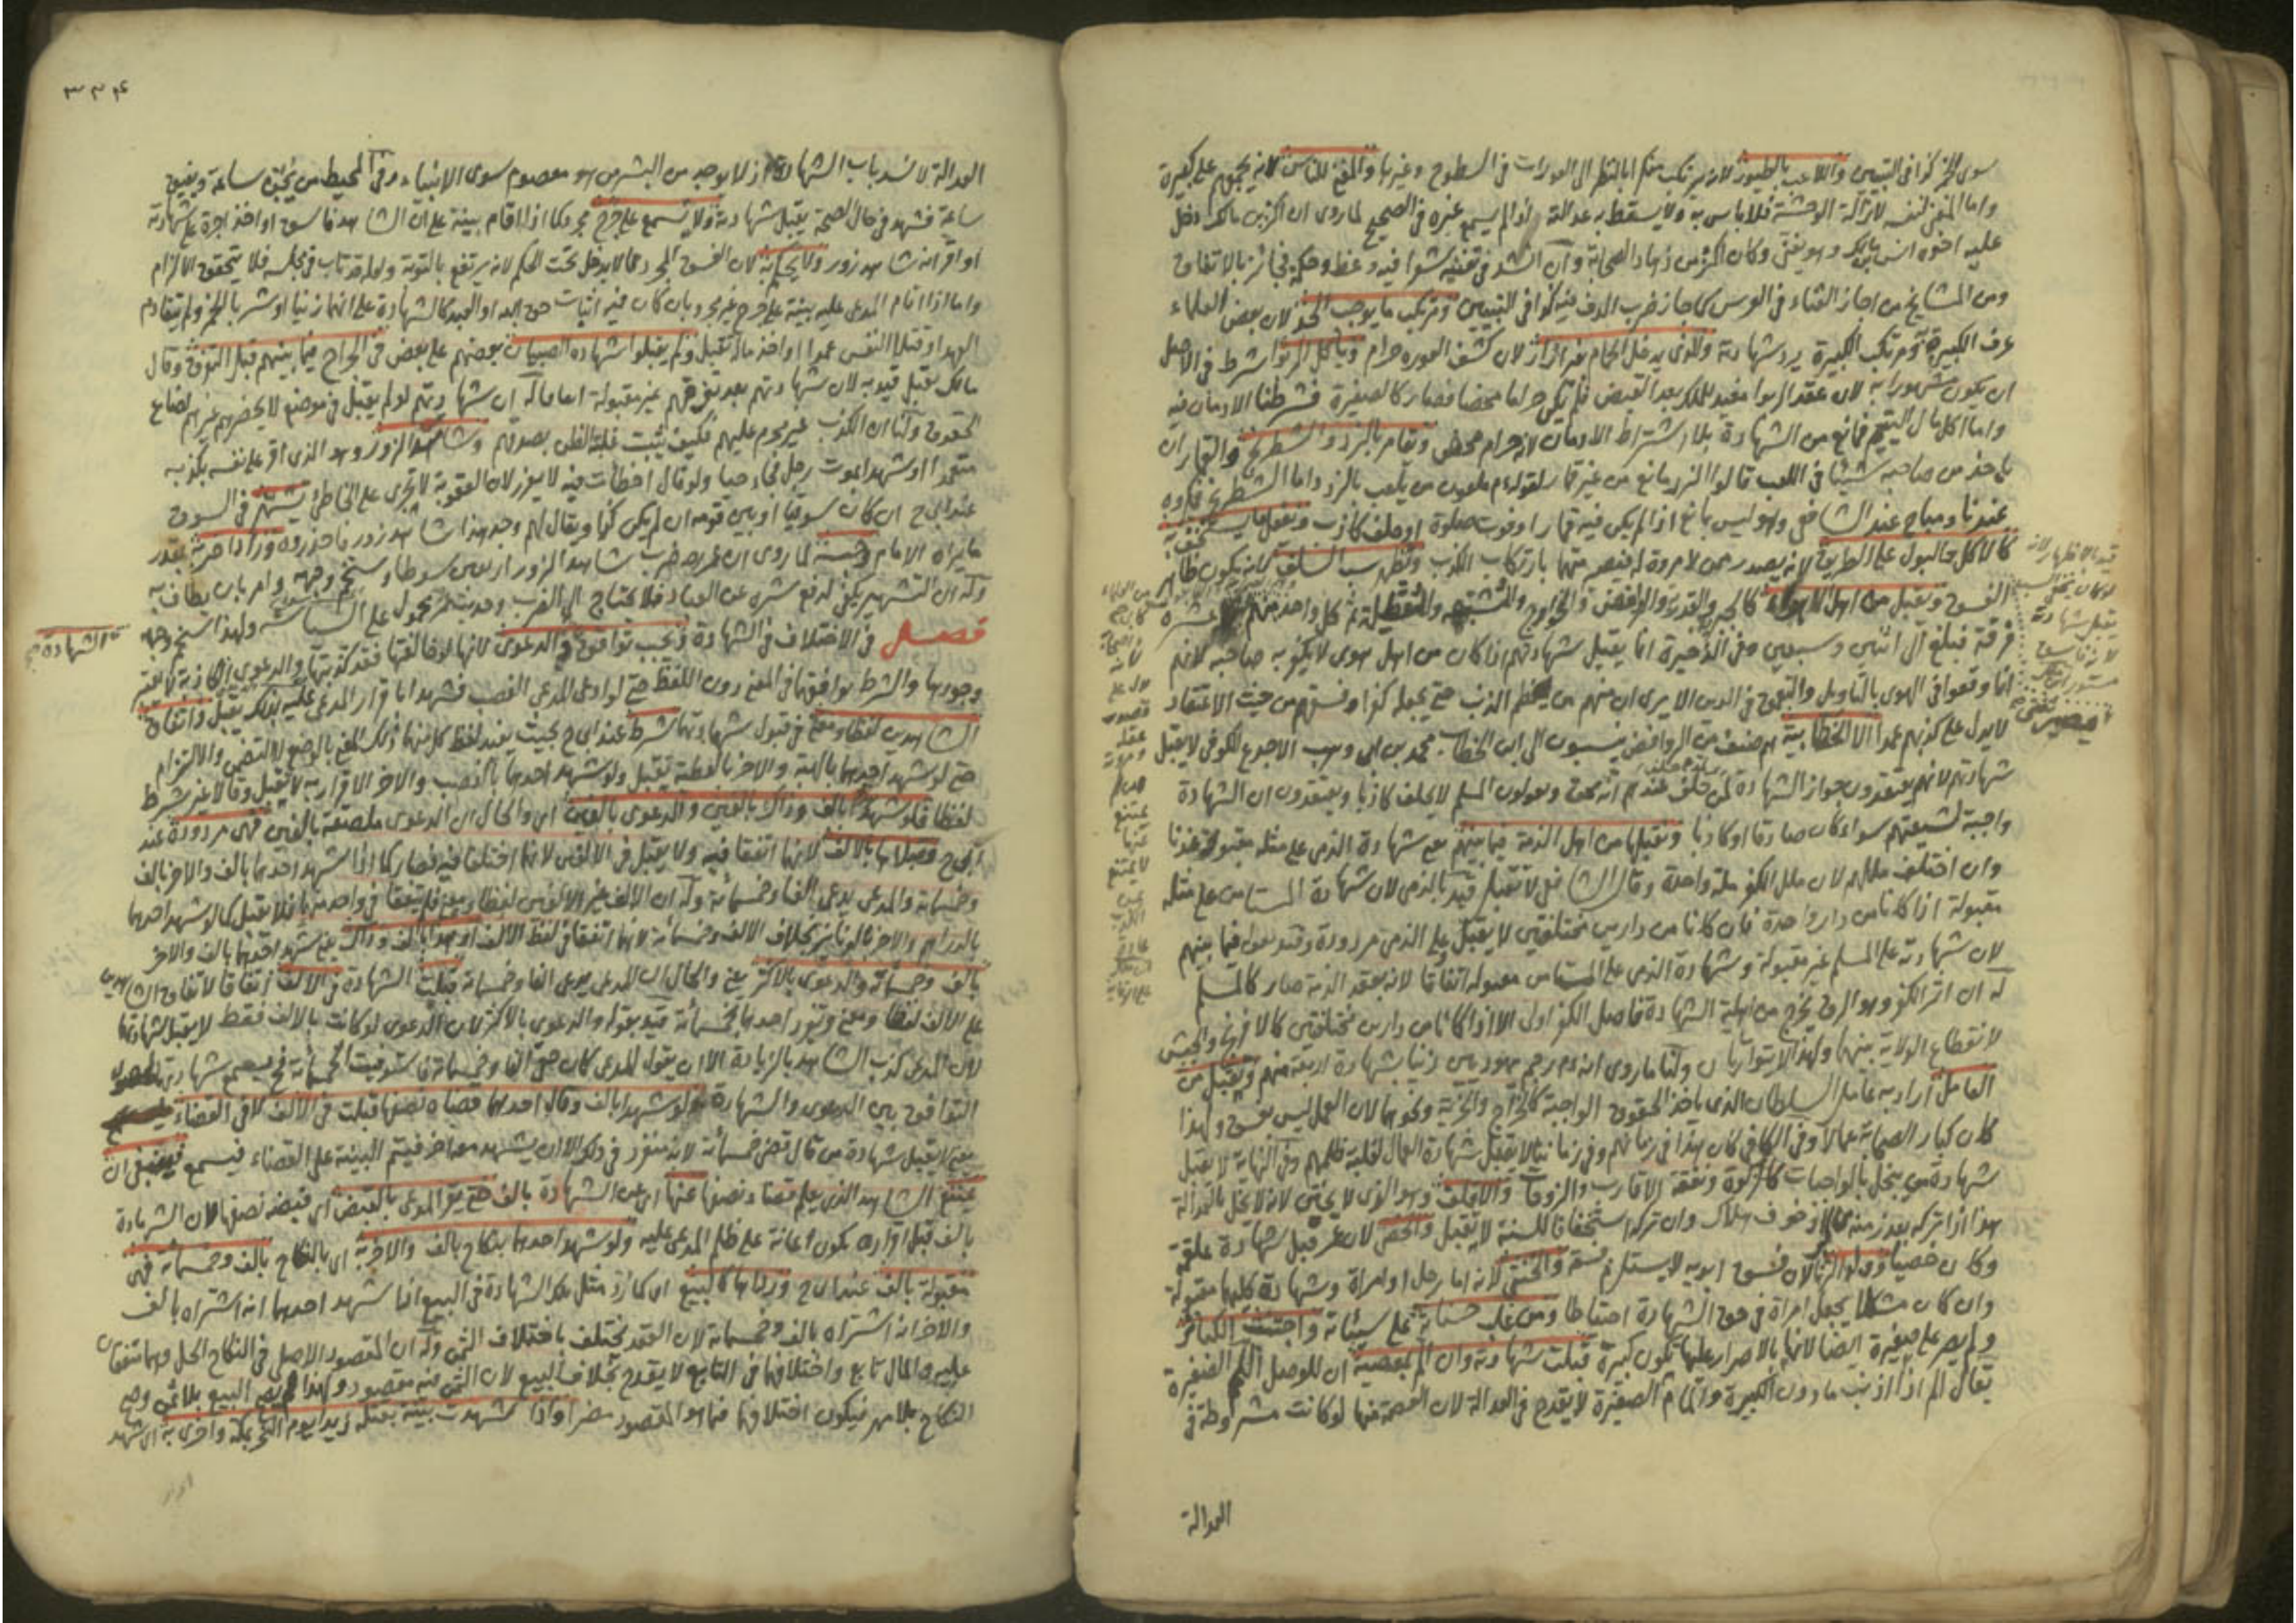 سوى الخمر كذا في التبيين واللاعب بالطيور لانه يرتكب منكرا بالنظر الى العورات في السطوح وغيرها والمغني للناس لانه يجمعهم على كبيرة
واما المغني لنفسه لازالة الوحشة فلا باس به ولا يسقط به عدالته اذا لم يسمع غيره في الصحيح لما روى ان البراء بن مالك دخل
عليه اخوه انس بن مالك وهو يغني وكان من زهاد الصحابة وان انشد في تغنيه شعرا فيه وعظ وحكمة فجائز بالاتفاق
ومن المشايخ من اجاز الغناء في العرس كما جاز ضرب الدف فيه كذا في التبيين ومرتكب ما يوجب الحد لان بعض العلماء
عرف الكبيرة به ومرتكب الكبيرة يرد شهادته والذي يدخل الحمام بغير ازار لان كشف العورة حرام وياكل الربوا شرط في الاصل
ان يكون مشهورا به لان عقد الربوا مفيد للملك بعد القبض فلم يكن حراما محضا فصار كالصغيرة فشرطنا الادمان فيه
واما اكل مال اليتيم فمانع من الشهادة بلا اشتراط الادمان لانه حرام محض ويقامر بالنرد والشطرنج والقمار ان
ياخذ من صاحبه شيئا في اللعب قالوا النرد مانع من غير قمار لقوله عم ملعون من يلعب بالنرد واما الشطرنج فمكروه
عندنا ومباح عند الشافعي وهو ليس بمانع اذا لم يكن فيه قمار او فوت صلوة او حلف كاذب ويفعل ما يستخف به
كالاكل والبول على الطريق لانه يصدر ممن لا مروة له فيصير متهما بارتكاب الكذب ويظهر سب السلف لانه يكون ظاهر
الفسق ويقبل من اهل الاهواء كالجبر والقدرية والروافض والخوارج والمشبهة والمعطلة ثم كل واحد منهم عشرة
فرقة فبلغ الى اثنين وسبعين وفي الذخيرة انما يقبل شهادتهم اذا كان من اهل هوى لا يكفر به صاحبه لانهم
انما وقعوا في الهوى بالتاويل والتعمق في الدين الا يرى ان منهم من يعظم الذنب حتى يجعله كفرا وفسقهم من حيث الاعتقاد
لا يدل على كذبهم عمدا الا الخطابية هم صنف من الروافض ينسبون الى ابن الخطاب محمد بن ابي وهب الاجدع الكوفي لا يقبل
شهادتهم لانهم يعتقدون جواز الشهادة لمن حلف عندهم انه محق ويقولون المسلم لا يحلف كاذبا ويعتقدون ان الشهادة
واجبة لشيعتهم سواء كان صادقا او كاذبا ونقبلها من اهل الذمة فيما بينهم يعني شهادة الذمي على مثله مقبولة عندنا
وان اختلف مللهم لان ملل الكفر ملة واحدة وقال الشافعي لا تقبل قيد بالذمي لان شهادة المستامن على مثله
مقبولة اذا كانا من دار واحدة فان كانا من دارين مختلفتين لا يقبل وعلى الذمي مردودة وقيد بقوله فيما بينهم
لان شهادته على المسلم غير مقبولة وشهادة الذمي على المستامن مقبولة اتفاقا لانه بعقد الذمة صار كالمسلم
له ان اثر الكفر وهو الرق يخرج من اهلية الشهادة فاصل الكفر اولى الا اذا كانا من دارين مختلفتين كالافرنج والحبش
لانقطاع الولاية بينهما ولهذا لا يتوارثان ولنا ما روى انه عم رجم يهوديين زنيا بشهادة اربعة منهم ويقبل من
العامل اراد به عامل السلطان الذي ياخذ الحقوق الواجبة كالخراج والجزية ونحوهما لان العمل ليس بفسق ولهذا
كان كبار الصحابة عمالا وفي الكافي كان هذا في زمانهم وفي زماننا لا يقبل شهادة العمال لغلبة ظلمهم وفي النهاية لا يقبل
شهادة من يبخل بالواجبات كالزكوة ونفقة الاقارب والزوجات والاقلف وهو الذي لا يختن لانه لا يخل بالعدالة
هذا اذا تركه بعذر خوف هلاك وان تركه استخفافا للسنة لا يقبل والخصي لان عمر قبل شهادة علقمة
وكان خصيا وولد الزنا لان فسق ابويه لا يستلزم فسقه والخنثى لانه اما رجل او امراة وشهادة كليهما مقبولة
وان كان مشكلا يجعل امراة في حق الشهادة احتياطا ومن غلب حسناته على سيئاته واجتنب الكبائر
ولم يصر على صغيرة ايضا لانها بالاصرار عليها تكون كبيرة قبلت شهادته وان الم بمعصية ان للوصل اللمم الصغيرة
يقال الم اذا اذنب ما دون الكبيرة والمام الصغيرة لا يقدح في العدالة لان العصمة منها لو كانت مشروطة في
العدالة
قيد بالاظهار لانه
لو كان يخفي السب
يقبل شهادته
لانه فاسق
مستور
٣٣٤
العدالة لانسد باب الشهادة اذ لا يوجد من البشر من هو معصوم سوى الانبياء وفي المحيط من يجن ساعة ويفيق
ساعة فشهد في حال الصحة يقبل شهادته ولا يسمع على جرح مجرد كما اذا اقام بينة على ان الشاهد فاسق او اخذ اجرة على شهادته
او اقر انه شاهد زور ولا يحكم به لان الفسق المجرد مما لا يدخل تحت الحكم لانه يرتفع بالتوبة ولعله قد تاب في مجلسه فلا يتحقق الالزام
واما اذا اقام المدعى عليه بينة على جرح غير مجرد بان كان فيه اثبات حق الله او العبد كالشهادة على انهما زنيا او شربا الخمر ولم يتقادم
العهد او قتلا النفس عمدا او اخذ ماله تقبل ولم يقبلوا شهادة الصبيان بعضهم على بعض في الجراح فيما بينهم قبل التفرق وقال
مالك يقبل قيد به لان شهادتهم بعد تفرقهم غير مقبولة اتفاقا له ان شهادتهم لو لم يقبل في موضع لا يحضرهم غيرهم لضاع
الحقوق ولنا ان الكذب غير محرم عليهم فكيف يثبت غلبة الظن بصدقهم وشاهد الزور وهو الذي اقر على نفسه بكذبه
متعمدا او شهد بموت رجل فجاء حيا ولو قال اخطات فيه لا يعزر لان العقوبة لا تجرى على الخاطئ يشهر في السوق
عند ابي ح ان كان سوقيا او بين قومه ان لم يكن كذا ويقال لهم وجد هذا شاهد زور فاحذروه وزادا ضربه بقدر
ما يراه الامام وحبسه لما روى ان عمر رضه ضرب شاهد الزور اربعين سوطا وسخم وجهه وامر بان يطاف به
وله ان التشهير يكفي لدفع شره عن العباد فلا يحتاج الى الضرب وحديث عمر محمول على السياسة ولهذا سخم وجهه
فصل في الاختلاف في الشهادة ويجب توافق والدعوى لانها لو خالفتها فقد كذبتها والدعوى الكاذبة لا يعتبر
الشهادة
وجودها والشرط توافقهما في المعنى دون اللفظ حتى لو ادعى المدعي الغصب فشهدا باقرار المدعى عليه بذلك يقبل واتفاق
الشاهدين لفظا ومعنى في قبول شهادتهما شرط عند ابي ح بحيث يفيد لفظ كل منهما ذلك المعنى بالوضع لا بالتضمن والالتزام
حتى لو شهد احدهما بالهبة والاخر بالعطية تقبل ولو شهد احدهما بالغصب والاخر الاقرار به لا تقبل وقالا غير شرط
لفظا فلو شهد بالف وذاك بالفين والدعوى بالفين اي والحال ان الدعوى ملصقة بالفين فهي مردودة عند
ابي ح وقبلاها بالالف لانهما اتفقا فيه ولا يقبل في الالفين لانهما اختلفا فيه فصار كما اذا شهد احدهما بالف والاخر بالف
وخمسمائة والمدعي يدعي الفا وخمسمائة وله ان الالف غير الالفين لفظا ومعنى فلم يتفقا في واحد منهما فلا تقبل كما لو شهد احدهما
بالدراهم والاخر بالدنانير بخلاف الالف وخمسمائة لانهما اتفقا في لفظ الالف او هذا بالف وذاك يعني شهد احدهما بالف والاخر
بالف وخمسمائة والدعوى بالاكثر يعني والحال ان المدعي يدعي الفا وخمسمائة قبلت الشهادة في الالف اتفاقا لاتفاق الشاهدين
على الالف لفظا ومعنى وتفرد احدهما بخمسمائة قيد بقوله والدعوى بالاكثر لان الدعوى لو كانت بالالف فقط لا يقبل شهادتهما
لان المدعي كذب الشاهد بالزيادة الا ان يقول المدعي كان حقي الفا وخمسمائة فاستوفيت الخمسمائة فح يسمع شهادته
التوافق بين الدعوى والشهادة ولو شهدا بالف وقال احدهما قضاه نصفها قبلت في الالف لا في القضاء
يعني لا تقبل شهادة من قال قضى خمسمائة لانه منفرد في ذلك الا ان يشهد معه اخر فيتم البينة على القضاء فيسمع فينبغي ان
يمتنع الشاهد الذي يعلم قضاء نصفها عنها اي عن الشهادة بالف حتى يقر المدعي بالقبض اي قبضه نصفها لان الشهادة
بالف قبل اقراره يكون اعانة على ظلم المدعى عليه ولو شهد احدهما بنكاح بالف والاخر به اي بالنكاح بالف وخمسمائة فهي
مقبولة بالف عند ابي ح ورداها كالبيع اي كما رد مثل هذه الشهادة في البيع اذا شهد احدهما انه اشتراه بالف
والاخر انه اشتراه بالف وخمسمائة لان العقد يختلف باختلاف الثمن وله ان المقصود الاصلي في النكاح الحل وهما متفقان
عليه والمال تابع واختلافهما في التابع لا يقدح بخلاف البيع لان الثمن فيه مقصود ولهذا لم يصح البيع بلا ثمن وصح
النكاح بلا مهر فيكون اختلافهما فيما هو المقصود مضرا واذا شهدت بينة بقتله زيدا يوم النحر بمكة واخرى به اي شهد